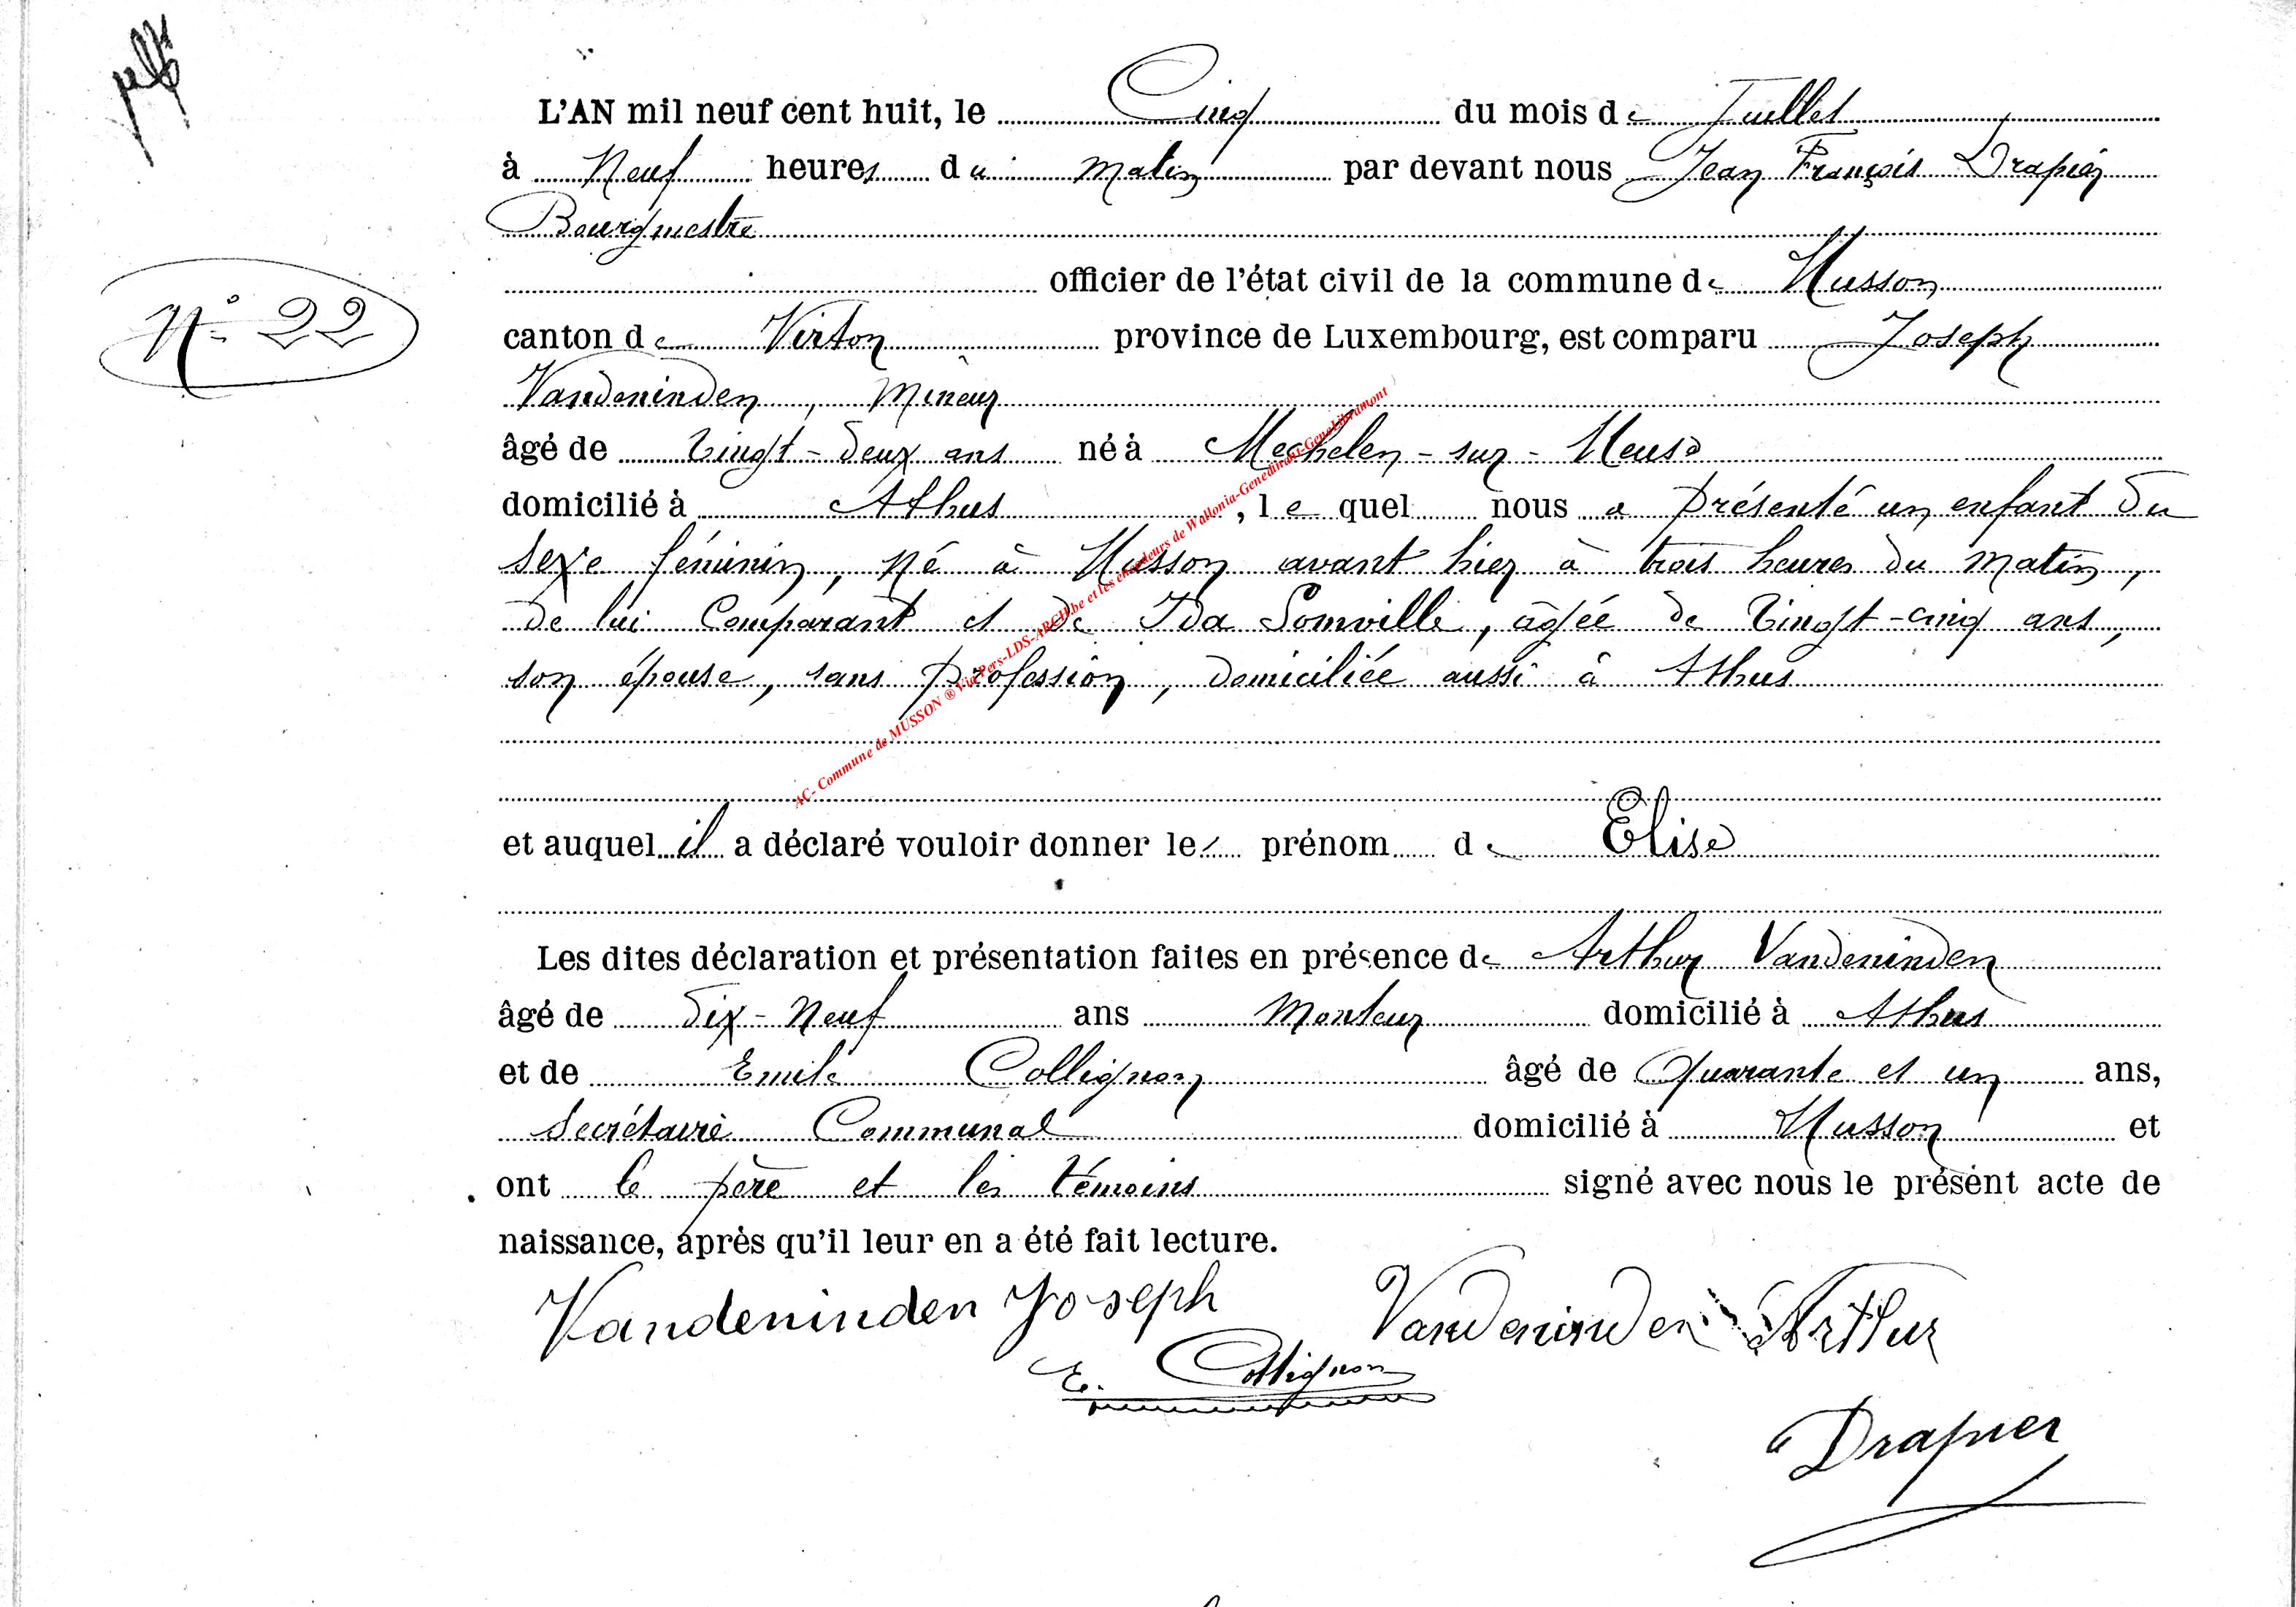 L'AN mil neuf cent huit, le Cinq du mois de Juillet
à Neuf heures du matin par devant nous Jean François Drapier
Bourgmestre
officier de l'état civil de la commune de Musson
N° 22
canton de Virton province de Luxembourg, est comparu Joseph
Vandeninden, Mineur
âgé de vingt-deux ans né à Mechelen-sur-Meuse
domicilié à Athus, lequel nous a présenté un enfant du
sexe féminin, né à Musson avant hier à trois heures du matin,
de lui Comparant et de Ida Somville, âgée de vingt-cinq ans,
son épouse, sans profession, domiciliée aussi à Athus
AC- Commune de MUSSON ® Via Pers-LDS-ARCH.be et les encodeurs de Wallonia-Genedinant-GeneLibramont
et auquel il a déclaré vouloir donner le prénom de Elise
Les dites déclaration et présentation faites en présence de Arthur Vandeninden
âgé de dix-Neuf ans Monteur domicilié à Athus
et de Emile Collignon âgé de Quarante et un ans,
Secrétaire Communal domicilié à Musson et
ont le père et les témoins signé avec nous le présent acte de
naissance, après qu'il leur en a été fait lecture.
Vandeninden Joseph Vandeninden Arthur
E. Collignon
Drapier